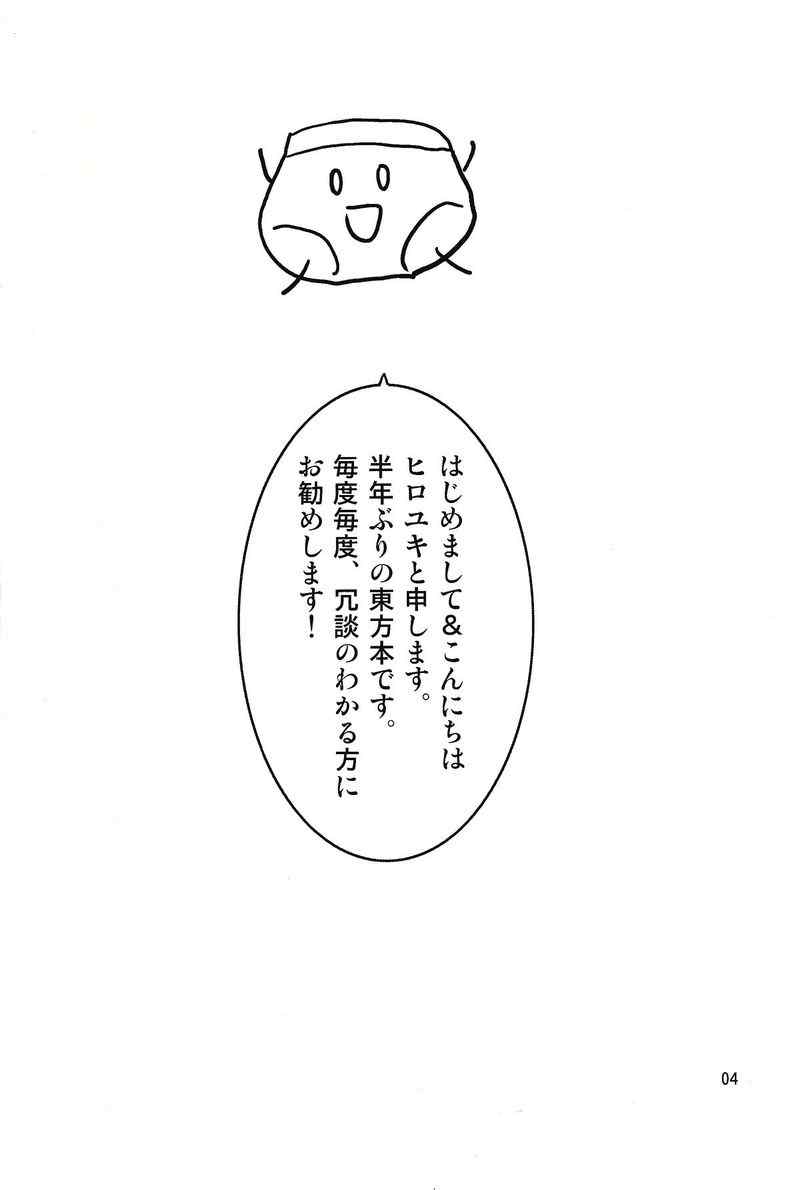 はじめまして&こんにちは
ヒロユキと申します。
半年ぶりの東方本です。
毎度毎度、冗談のわかる方に
お勧めします!
04